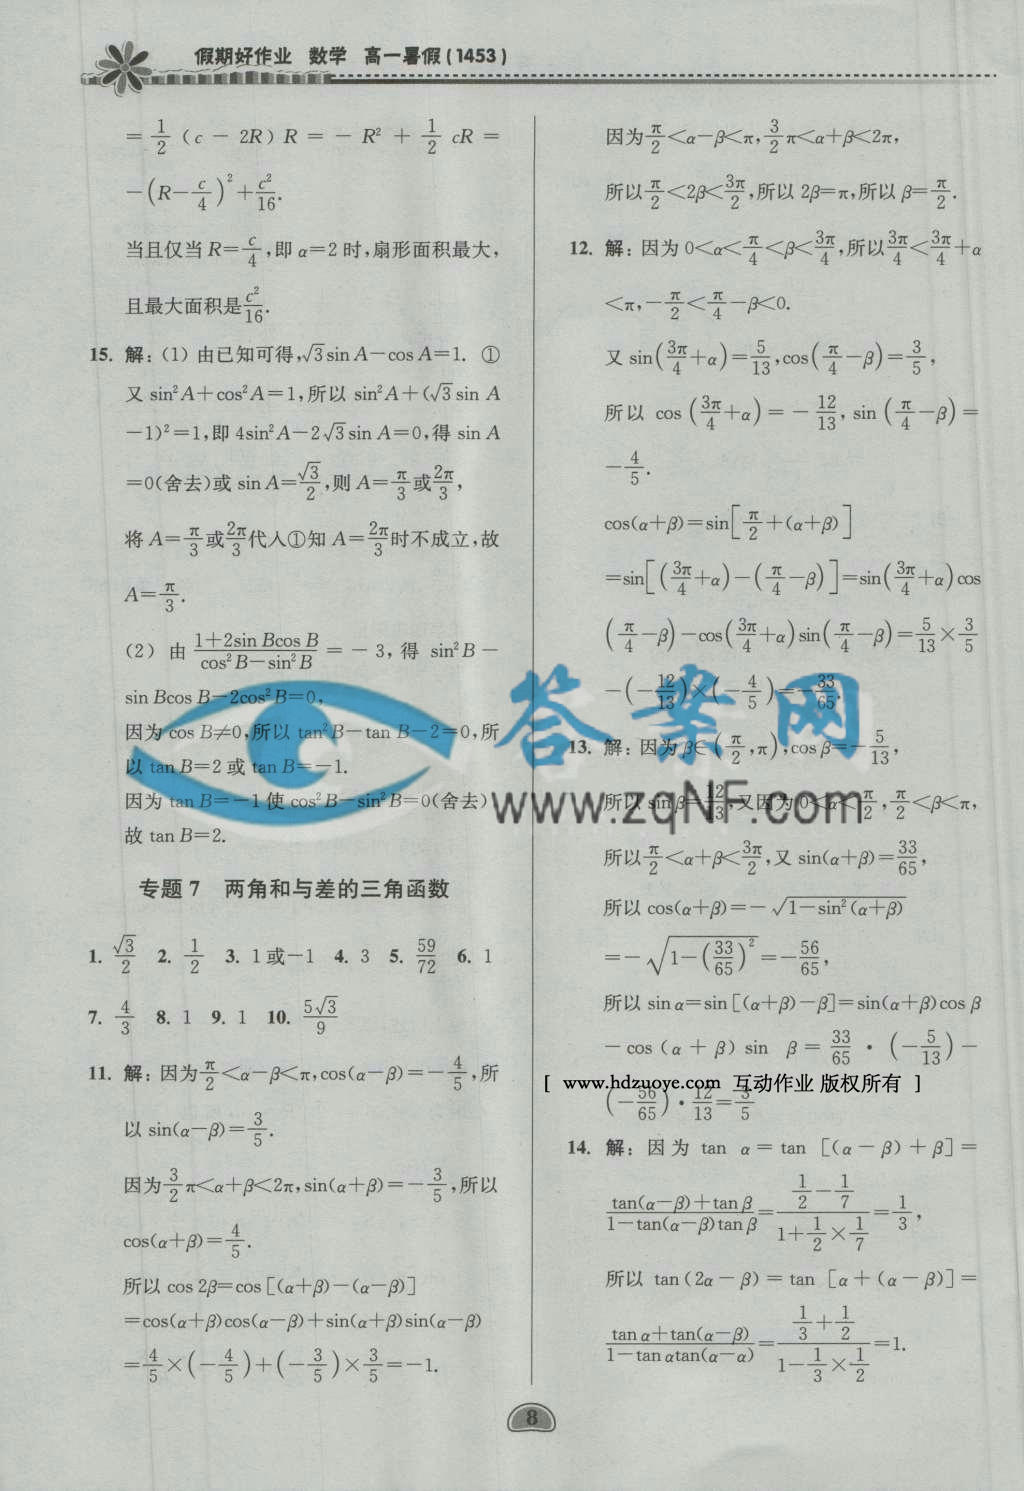 假期好作业 数学 高一暑假(1453)
=1/2(c-2R)R=-R²+1/2cR=
-(R-c/4)²+c²/16.
当且仅当R=c/4,即α=2时,扇形面积最大,
且最大面积是c²/16.
15. 解:(1)由已知可得,√3sin A-cos A=1. ①
又sin²A+cos²A=1,所以sin²A+(√3sin A
-1)²=1,即4sin²A-2√3sin A=0,得sin A
=0(舍去)或sin A=√3/2,则A=π/3或2π/3,
将A=π/3或2π/3代入①知A=2π/3时不成立,故
A=π/3.
(2)由(1+2sin Bcos B)/(cos²B-sin²B)=-3,得sin²B-
sin Bcos B-2cos²B=0,
因为cos B≠0,所以tan²B-tan B-2=0,所
以tan B=2或tan B=-1.
因为tan B=-1使cos²B-sin²B=0(舍去)
故tan B=2.
专题7 两角和与差的三角函数
1. √3/2 2. 1/2 3. 1或-1 4. 3 5. 59/72 6. 1
7. 4/3 8. 1 9. 1 10. 5√3/9
11. 解:因为π/2<α-β<π,cos(α-β)=-4/5,所
以sin(α-β)=3/5.
因为3/2π<α+β<2π,sin(α+β)=-3/5,所以
cos(α+β)=4/5.
所以cos 2β=cos[(α+β)-(α-β)]
=cos(α+β)cos(α-β)+sin(α+β)sin(α-β)
=4/5×(-4/5)+(-3/5)×3/5=-1.
因为π/2<α-β<π,3/2π<α+β<2π,
所以π/2<2β<3π/2,所以2β=π,所以β=π/2.
12. 解:因为0<α<π/4<β<3π/4,所以3π/4<3π/4+α
<π,-π/2<π/4-β<0.
又sin(3π/4+α)=5/13,cos(π/4-β)=3/5,
所以cos(3π/4+α)=-12/13,sin(π/4-β)=
-4/5.
cos(α+β)=sin[π/2+(α+β)]
=sin[(3π/4+α)-(π/4-β)]=sin(3π/4+α)cos
(π/4-β)-cos(3π/4+α)sin(π/4-β)=5/13×3/5
-(-12/13)×(-4/5)=-33/65.
13. 解:因为β∈(π/2,π),cos β=-5/13,
所以sin β=12/13,又因为0<α<π/2,π/2<β<π,
所以π/2<α+β<3π/2,又sin(α+β)=33/65,
所以cos(α+β)=-√(1-sin²(α+β))
=-√(1-(33/65)²)=-56/65,
所以sin α=sin[(α+β)-β]=sin(α+β)cos β
-cos(α+β)sin β=33/65·(-5/13)-
(-56/65)·12/13=3/5
14. 解:因为tan α=tan[(α-β)+β]=
(tan(α-β)+tan β)/(1-tan(α-β)tan β)=(1/2-1/7)/(1+1/2×1/7)=1/3,
所以tan(2α-β)=tan[α+(α-β)]=
(tan α+tan(α-β))/(1-tan αtan(α-α))=(1/3+1/2)/(1-1/3×1/2)=1.
答案网
www.zqNF.com
[ www.hdzuoye.com 互动作业 版权所有 ]
8